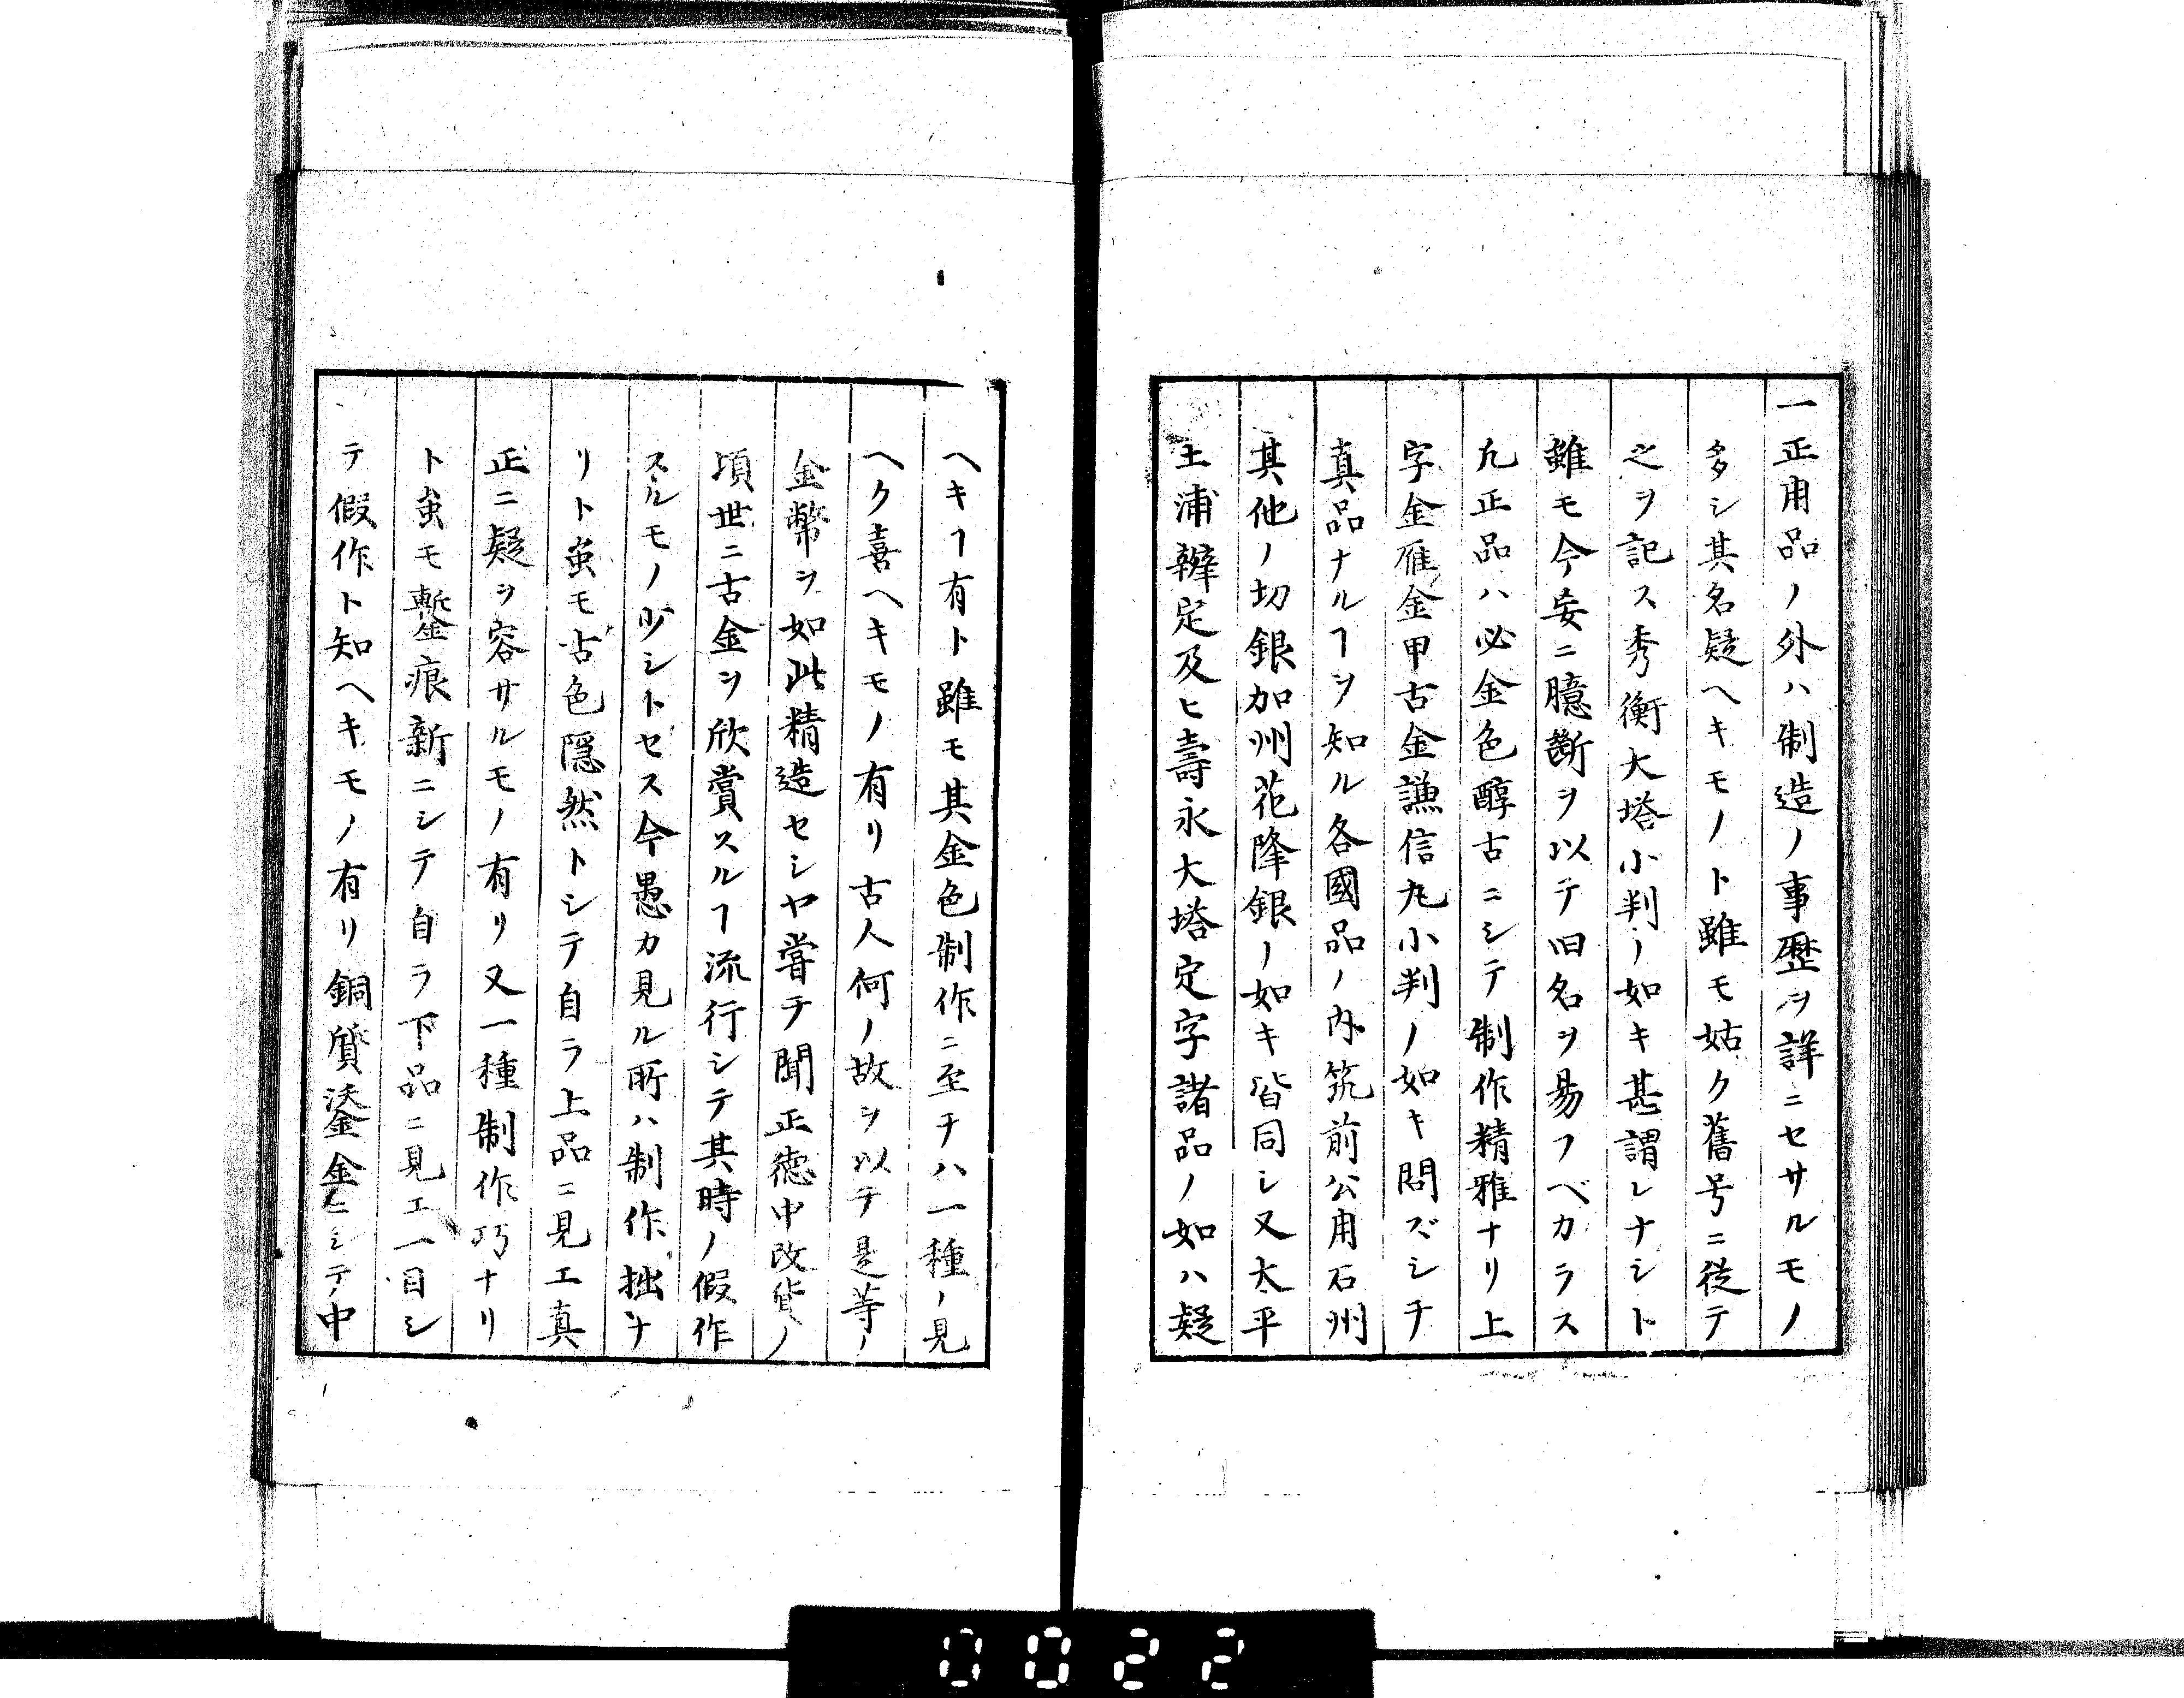 一正用品ノ外ハ制造ノ事歴ヲ詳ニセサルモノ
多シ其名疑ヘキモノト雖モ姑ク舊号ニ従テ
之ヲ記ス秀衡大塔小判ノ如キ甚謂レナシト
雖モ今妄ニ臆断ヲ以テ旧名ヲ易フベカラス
凡正品ハ必金色醇古ニシテ制作精雅ナリ上
字金雁金甲古金謙信丸小判ノ如キ問ズシテ
真品ナルヿヲ知ル各國品ノ内筑前公用石州
其他ノ切銀加州花降銀ノ如キ皆同シ又太平
土浦辨定及ヒ壽永大塔定字諸品ノ如ハ疑
ヘキヿ有ト雖モ其金色制作ニ至テハ一種ノ見
ヘク喜ヘキモノ有リ古人何ノ故ヲ以テ是等ノ
金幣ヲ如此精造セシヤ甞テ聞正徳中改貨ノ
項世ニ古金ヲ欣賞スルヿ流行シテ其時ノ假作
スルモノ少シトセス今愚カ見ル所ハ制作拙ナ
リト䖝モ古色隠然トシテ自ラ上品ニ見エ真
正ニ疑ヲ容サルモノ有リ又一種制作巧ナリ
ト䖝モ鏨痕新ニシテ自ラ下品ニ見エ一目シ
テ假作ト知ヘキモノ有リ銅質鋈金ニシテ中
0022